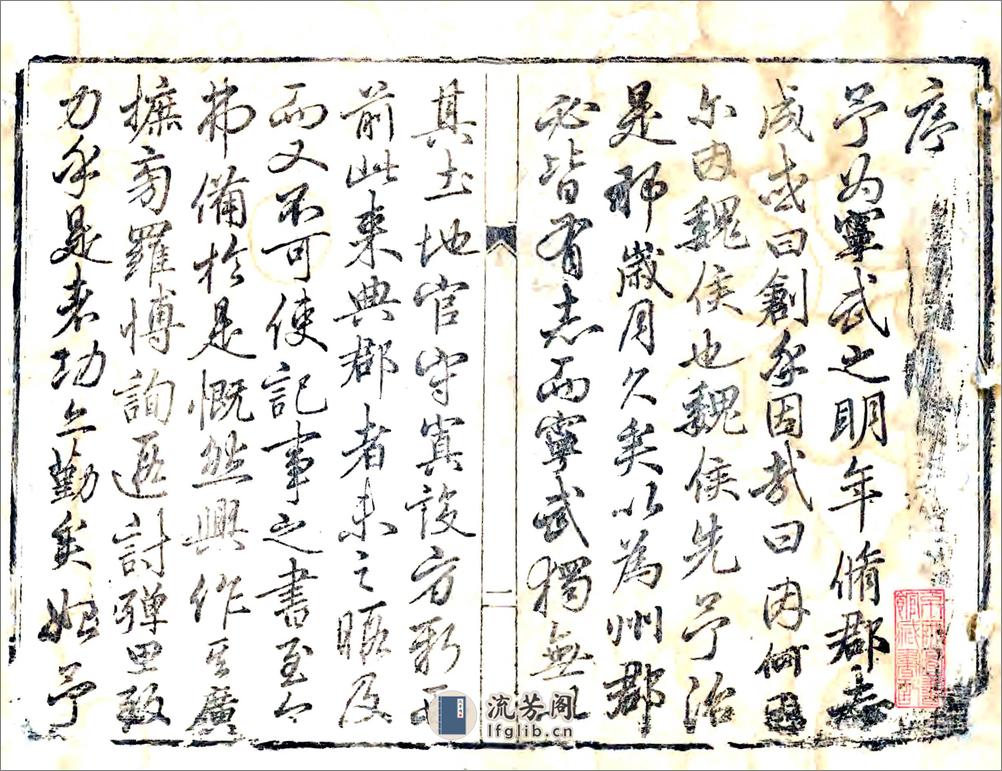 序
予为寧武之明年脩郡志
成或曰創乎因哉曰因何因
尔因魏侯也魏侯先予治
是邦歲月久矣以為州郡
必皆有志而寧武獨無
其土地官守寘設方新而
前此来典郡者未之暇及
而又不可使記事之書至今
弗備於是慨然興作旁廣
摭旁羅博詢遐討殫思致
力乎是書功亦勤矣始予
二
流芳阁
lfglib.cn